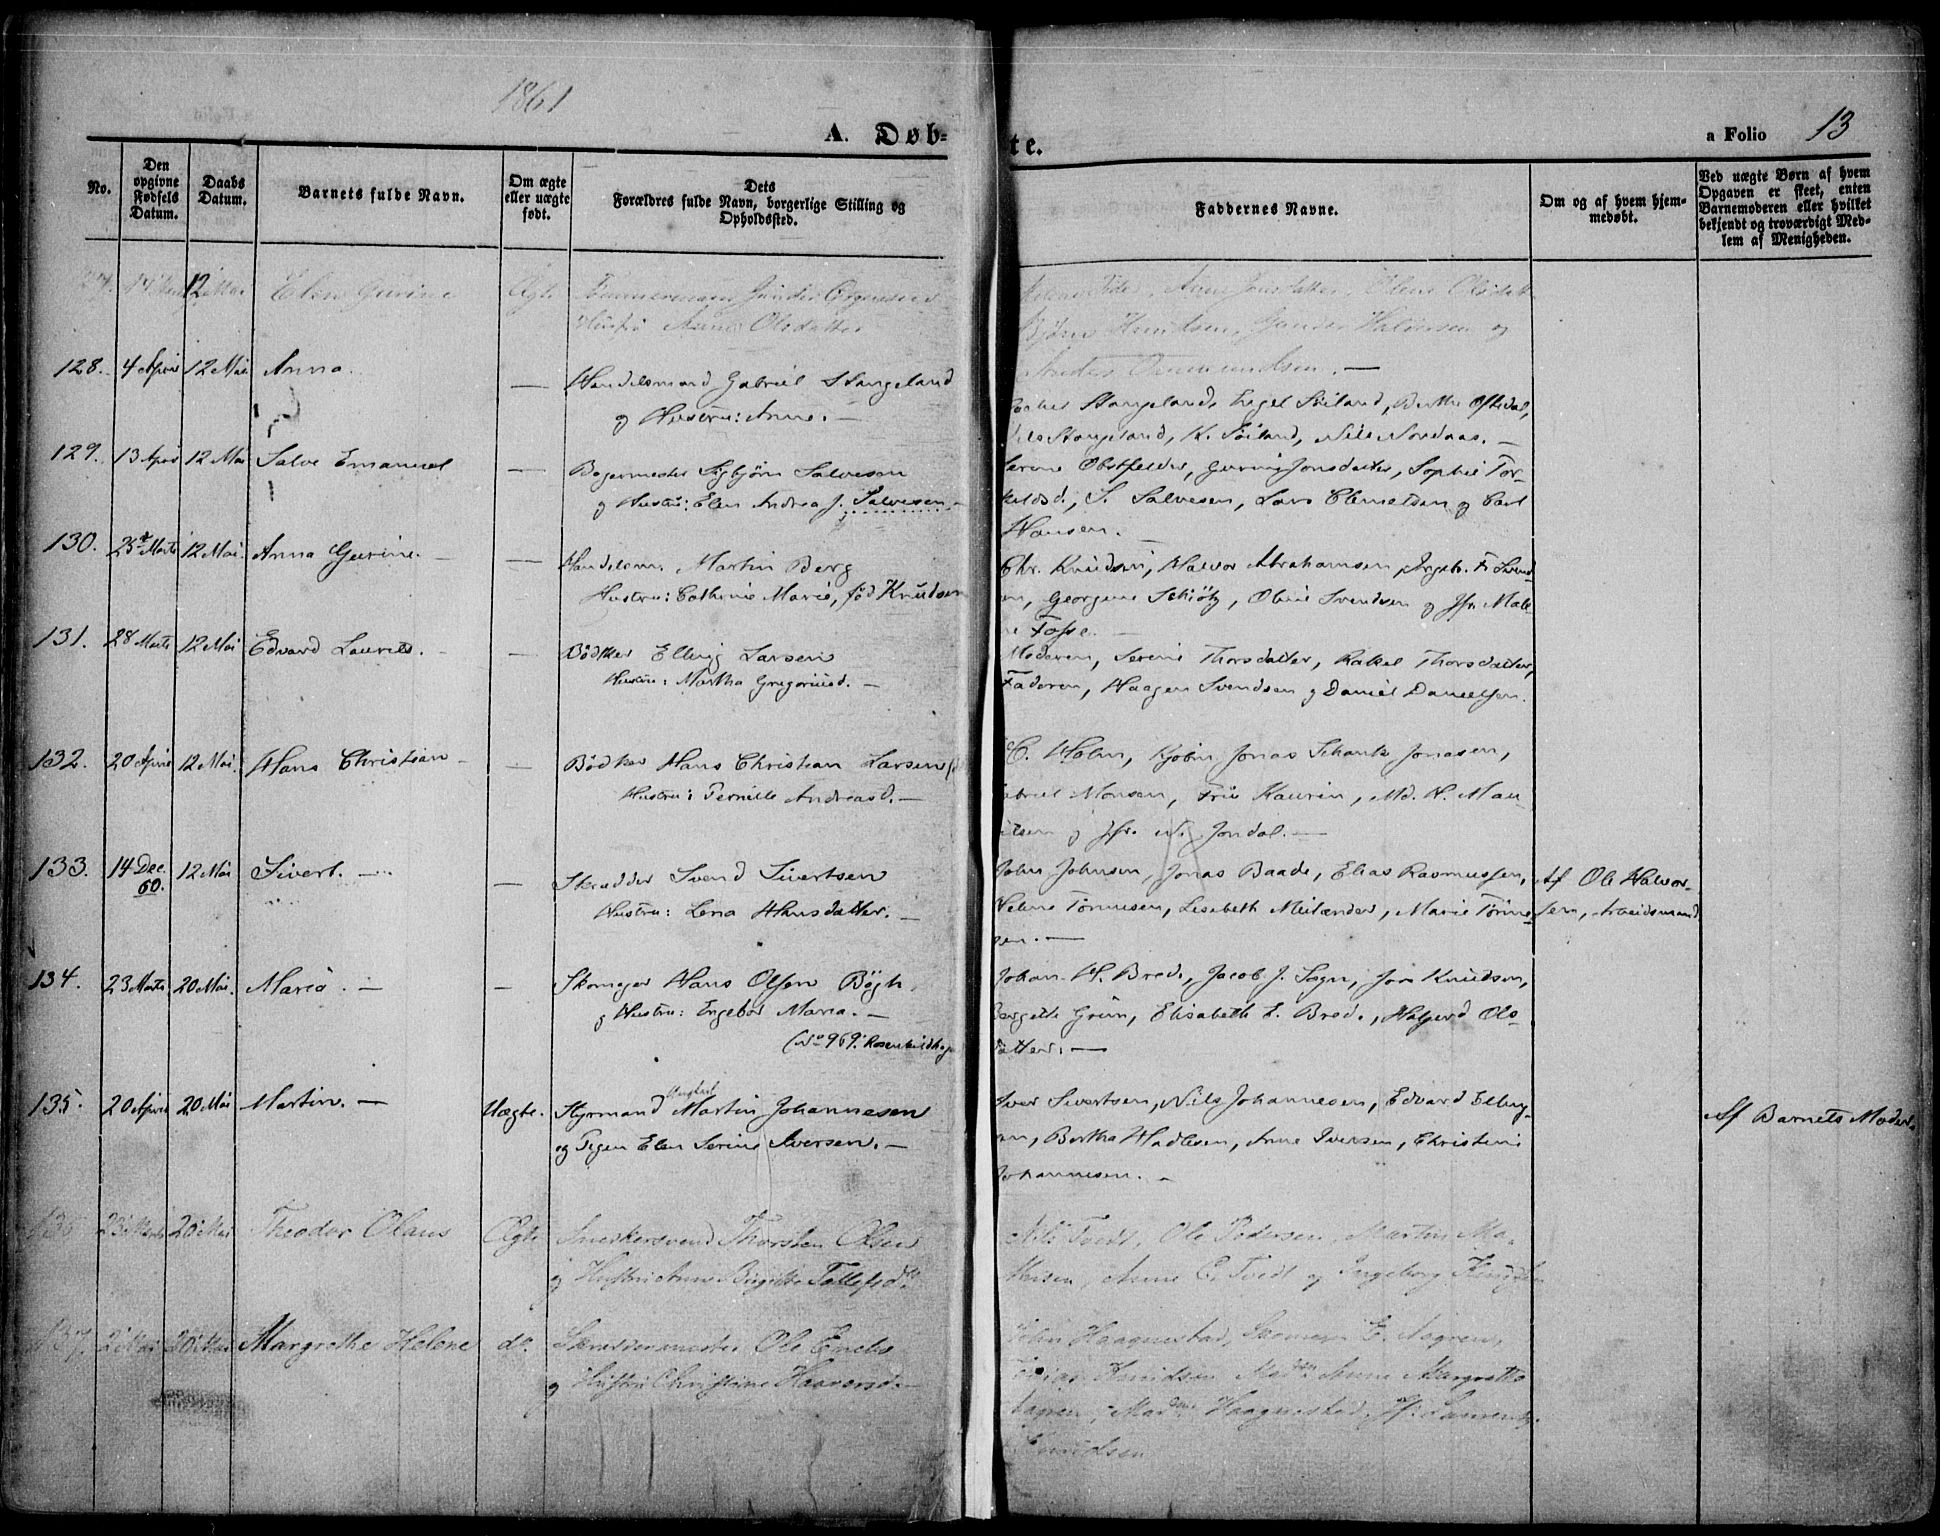 1861
A. Døb-
te.
a Folio 13
No.
Den
opgivne
Fødsels
Datum.
Daabs
Datum.
Barnets fulde Navn.
Om ægte
eller uægte
født.
Dets
Forældres fulde Navn, borgerlige Stilling og
Opholdssted.
Faddernes Navne.
Om og af hvem hjem-
medøbt.
Ved uægte Børn af hvem
Opgaven er skeet, enten
Barnemoderen eller hvilket
bekjendt og troværdigt Med-
lem af Menigheden.
12 Mai Elen Gurine Ægte Tømmermand Gunder
Hustru Anne Olsdatter
Anne Jonsdatter, Olene Olsdatt
Bjørn Knudsen, Gunder Halvorsen og
128. 4 April 12 Mai Anna. — Handelsmand Gabriel Stangeland
og Hustru: Anne. —
Stangeland, Engel Soiland, Berthe Oftedal,
Stangeland, K. Soiland, Nils Nordaas. —
129. 13 April 12 Mai Salve Emanuel — Bagermester Sigbjørn Salvesen
og Hustru: Elen Andrea J. Salvesen —
Serene Obstfelder, Gurine Jonsdatter, Sophie Tor-
kildsd., S. Salvesen, Lars Clemetsen og Carl
Hansen.
130. 25 Marts 12 Mai Anna Gurine. — — Handelsm. Martin Berg
Hustru: Cathrine Marie, fød Knudsen
Chr. Knudsen, Halvor Abrahamsen, Ingeb. F. Svend-
en, Georgine Schiøtz, Oline Svendsen og Jfr. Male-
ne Fosse. —
131. 28 Marts 12 Mai Edvard Laurits. — — Bødker Elling Larsen
Hustru: Martha Gregoriusd. —
Moderen, Serine Thorsdatter, Rakel Thorsdatter,
Faderen, Haagen Svendsen og Daniel Danielsen.
132. 20 April 12 Mai. Hans Christian — — Bødker Hans Christian Larsen
Hustru: Pernille Andreasd. —
C. Holm, Kjøbm. Jonas Schantz Jonasen,
Gabriel Monsen, Fru Kaurin, Md. N. Mau-
ritsen og Jfr. N. Jondal. —
133. 14 Dec. 60. 12 Mai Sivert. — — Skrædder Svend Sivertsen
Hustru: Lena Hansdatter. —
John Johnsen, Jonas Baade, Elias Rasmussen,
Helene Tørresen, Lisebeth Meilænder, Marie Tørre-
sen. —
Af Ole Halvor-
sen, Arbeidsmand
134. 23 Marts 20 Mai. Maria. — — Skomager Hans Olsen Bøgh.
og Hustru: Engebor Maria. —
(No 969. Rosenkildhagen
Johan H. Brede, Jacob J. Sagn, Jon Knudsen,
Bergette Grün, Elisabeth E. Brede, Halgerd Ols-
datter. —
135. 20 April 20 Mai Martin. — Uægte. Styrmand Ungkarl Martin Johannesen
og Pigen Elen Serine Iversen. —
Iver Sivertsen, Nils Johannesen, Edvard Elling-
en, Bertha Hadlesen, Anne Iversen, Christine
Johannesen. —
Af Barnets Moder.
23 Marts 20 Mai Theodor Olaus Ægte Snedkersvend Thorsten Olsen
og Hustru Anne Birgitte Tollefsdtr
Nils Tvedt, Ole Pedersen, Martin Ma-
thisen, Anne C. Tvedt og Ingeborg
137. 2 Mai 20 Mai Margrethe Helene do. Skræddermester Ole
og Hustru Christine Haavorsd. —
John Haagnestad, Skomager E. Aagren,
Tobias Knudsen, Madme Anne Margrethe
Aagren, Madme Haagnestad, Jfr.
Knudsen